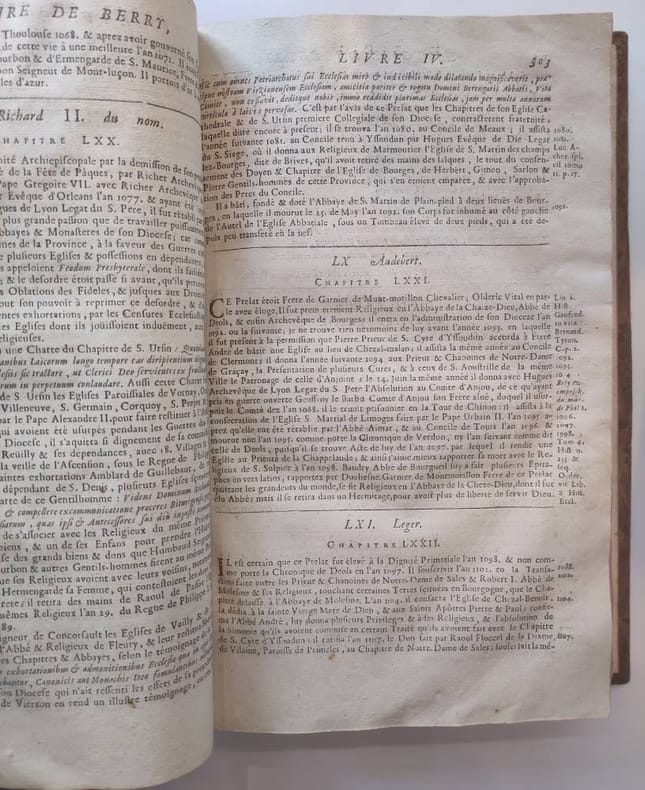 RE DE BERRY,
Thoulouse 1068. & aprez avoir gouverné son
de cette vie à une meilleure l'an 1071. Il
ourbon & d'Ermengarde de S. Maurice, Frere
on Seigneur de Mont-luçon. Il portoit d'or
les d'azur.
Richard II. du nom.
CHAPITRE LXX.
nité Archiepiscopale par la demission de son
é de la Fête de Pâques, par Richer Archevêque
Pape Gregoire VII. avec Richer Archevêque
Evêque d'Orleans l'an 1077. & ayant été
gues de Lyon Legat du S. Pere, il fut rétabli
plus grande passion que de travailler puissam-
bbayes & Monasteres de son Diocese; car
mes de la Province, à la faveur des Guerres
e plusieurs Eglises & possessions en dépendantes,
s appeloient Feodum Presbyterale, dont ils faisoient
; & le desordre étoit passé si avant, qu'ils
s Oblations des Fideles, & jusques aux Droits
out son pouvoir à reprimer ce desordre, &
entes exhortations, par les Censures Ecclesiast
es Eglises dont ils joüissoient induëment, aux
eligieuses.
une Chartre du Chapitre de S. Ursin:
manibus Laicorum longo tempore eas diripientium
rum in perpetuum conlaudare. Aussi cette Chartre
de S. Ursin les Eglises Paroissiales de Vornay,
Villeneuve, S. Germain, Corquoy, S. Projet
r le Pape Alexandre II. pour faire restituer à
qui avoient été usurpez pendant les Guerres
Diocese, il s'aquitta si dignement de sa commis
Reüilly & ses dépendances, avec 18. Villages
la veille de l'Ascension, sous le Regne de Philippe
aintes exhortations Amblard de Guillebaut,
dépendant de S. Denis, plusieurs Eglises
arte de ce Gentilhomme: Videns Dominum
& compellere excommunicatione proceres Bituri
siarum, quas ipsi & Antecessores sui diu injuste
de s'associer avec les Religieux du même Prieuré
biens, & un de ses Enfans pour prendre l'Habit
se des grands biens & dont que Humbaud Seigneur
ourbon & autres Gentils-hommes firent au même
que ses Religieux avoient avec leurs voisins,
Hermengarde sa Femme, qui contestoient les
rete; il retira des mains de Raoul de Passat
mêmes Religieux l'an 29. du Regne de Philippe
89.
igneur de Concorsault les Eglises de Vailly &
l'Abbé & Religieux de Fleury, & leur restitua
s Chapitres & Abbayes, selon le témoignage
exhortationibus & admonitionibus Ecclesia
bantur, Canonicis aut Monachis Deo famulantibus
son Diocese qui n'ait ressenti les effets de sa
de Vierzon en rend un illustre témoignage,
LIVRE IV. 303
sic cum omnes Patriarchatus sui Ecclesias miro & indicibili modo dilatando magnificaverit, præ-
cipuè nostram Virzionensem Ecclesiam, amicitia pariter & rogatu Domini Berengarii Abbatis, Vita
Comite, non cessavit, deditque nobis, immo reddidit plurimas Ecclesias, jam per multa annorum
curricula à laicis pervasas. C'est par l'avis de ce Prelat que les Chapitres de son Eglise Ca-
thedrale & de S. Ursin premiere Collegiale de son Diocese, contracterent fraternité,
laquelle dure encore à present; il se trouva l'an 1080. au Concile de Meaux; il assista
l'année suivante 1081. au Concile tenu à Yssoudun par Hugues Evêque de Die Legat
du S. Siege, où il donna aux Religieux de Marmoutier l'Eglise de S. Martin des champs
lez-Bourges, dite de Brives, qu'il avoit retiré des mains des laïques, le tout du consen-
tement des Doyen & Chapitre de l'Eglise de Bourges, de Herbert, Gimon, Sarlon &
Pierre Gentils-hommes de cette Province, qui s'en étoient emparez, & avec l'approba-
tion des Peres du Concile.
Il a bâti, fondé & doté l'Abbaye de S. Martin de Plain-pied à deux lieuës de Bour-
ges, en laquelle il mourut le 25. de May l'an 1092. son Corps fut inhumé au côté gauche
de l'Autel de l'Eglise Abbatiale, sous un Tombeau élevé de deux pieds, qui a été de-
puis peu transferé en la nef.
1080.
1081.
Luc A-
cher. spl.
cil tomo
11. p. 17.
1092.
LX Audebert.
CHAPITRE LXXI.
CE Prelat étoit Frere de Garnier de Mont-morillon Chevalier; Olderic Vital en par-
le avec éloge, Il fut premierement Religieux en l'Abbaye de la Chaize-Dieu, Abbé de
Deols, & enfin Archevêque de Bourges: il entra en l'administration de son Diocese l'an
1092. ou la suivante; je ne trouve rien neanmoins de luy avant l'année 1093. en laquelle
il fut présent à la permission que Pierre Prieur de S. Cyre d'Yssoudun accorda à Pierre
André de bâtir une Eglise au lieu de Chezal-malan; il assista la même année au Concile
de Clermont; il donna l'année suivante 1094. aux Prieur & Chanoines de Notre-Dame
de Graçay, la Presentation de plusieurs Cures, & à ceux de S. Aoustrille de la même
Ville le Patronage de celle d'Anjouin; le 14. Juin la même année il donna avec Hugues
Archevêque de Lyon Legat du S. Pere l'Absolution au Comte d'Anjou, de ce qu'ayant
pris en guerre ouverte Geoffroy le Barbu Comte d'Anjou son Frere aîné, duquel il usur-
poit le Comté dez l'an 1068. il le tenoit prisonnier en la Tour de Chinon: il assista à la
consecration de l'Eglise S. Martial de Limoges faite par le Pape Urbain II. l'an 1095. &
prez qu'elle eut été rétablie par l'Abbé Aimar, & au Concile de Tours l'an 1096. &
mourut non l'an 1095. comme porte la Chronique de Verdun, ny l'an suivant comme
celle de Deols, puisqu'il se trouve Acte de luy, de l'an 1097. par lequel il rendit une
Eglise au Prieuré de la Chappelaude; & ainsi j'aime mieux rapporter sa mort avec le Re-
ligieux de S. Sulpice à l'an 1098. Baudry Abbé de Bourgueil luy a fait plusieurs Epita-
phes en vers latins, rapportez par Duchesne. Garnier de Montmorillon Frere de ce Prelat
quittant les grandeurs du monde, se fit Religieux en l'Abbaye de la Cheze-Dieu, dont il fut
élu Abbé: mais il se retira dans un Hermitage, pour avoit plus de liberté de servir Dieu.
Liv. 2.
Hist.
Gaufred.
in vita
Bernard.
Tyron.
Cap. 2.
1092.
1093.
1094.
1096.
1098.
Tom. 4.
Hist.
255 &
seq.
Older.
vit Lib.
Hist.
Eccl.
LXI. Leger.
CHAPITRE LXXII.
IL est certain que ce Prelat fut élevé à la Dignité Primatiale l'an 1098. & non com-
me porte la Chronique de Deols en l'an 1097. Il souscrivit l'an 1101. en la Transa-
ction faite entre les Prieur & Chanoines de Notre-Dame de Sales & Robert I. Abbé de
Molesme & ses Religieux, touchant certaines Terres scituées en Bourgogne, que le Cha-
pitre delaissa à l'Abbaye de Molesme. L'an 1104. il consacra l'Eglise de Chezal-Benoist,
la dédia à la sainte Vierge Mere de Dieu, & aux Saints Apôtres Pierre & Paul; confir-
ma l'Abbé André, luy donna plusieurs Privileges & à ses Religieux, & l'absolution de
la Simonie qu'ils avoient commise en certain Traité qu'ils avoient fait avec le Chapitre
de S. Cyre d'Yssoudun; il ratifia l'an 1107. le Don fait par Raoul Floccel de la Dixme
de Vilaine, Paroisse de Primeles, au Chapitre de Notre-Dame de Sales; souscrivit la mê-
1098.
1104.
1107.